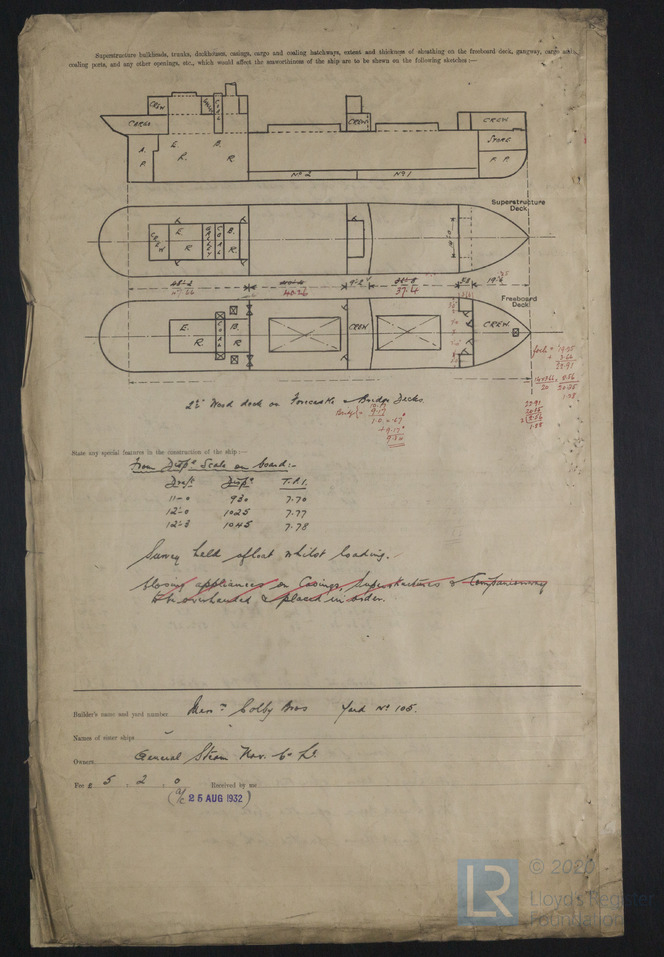 Superstructure bulkheads, trunks, deckhouses, casings, cargo and coaling hatchways, extent and thickness of sheathing on the freeboard deck, gangway, cargo and
coaling ports, and any other openings, etc., which would affect the seaworthiness of the ship are to be shown on the following sketches:—
CREW
CARGO
CREW
CREW
STORE
A.
P.
E.
R.
B.
R
No 2
No 1
F. P.
Superstructure
Deck.
CREW
E.
R
B.
R.
40.26
9.2
37.4
Freeboard
Deck.
E.
R
B.
R
CREW
CREW
2½" Wood deck on Forecastle & Bridge Decks
State any special features in the construction of the ship:—
From Dispt Scale on board:-
Draft Dispt T.P.I.
11-0 930 7.70
12-0 1025 7.77
12-3 1045 7.78
Survey held afloat whilst loading.
Closing appliances on Casings, Superstructures & Companionway
to be overhauled & placed in order.
Builder's name and yard number Messrs Colby Bros Yard No 105.
Names of sister ships
Owners General Steam Nav. Co Ld.
Fee £ 5 . 2 . 0 Received by me
25 AUG 1932
LR © 2020
Lloyd's Register
Foundation